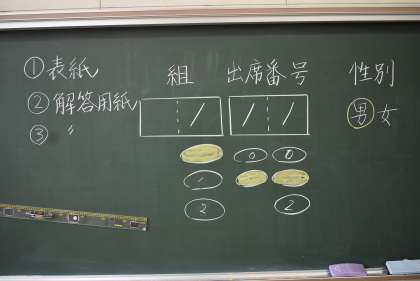 ①表紙 組 出席番号 性別
②解答用紙 / / / 男女
③ 〃
0 0
1
2 2